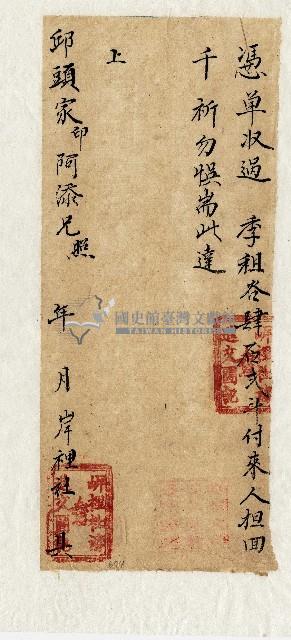 憑單收過 季租谷肆石弍斗付來人担回
千祈勿悞耑此達
上
邱頭家印阿添兄照 年 月 岸裡社 具
國史館臺灣文獻館
TAIWAN HISTORICA